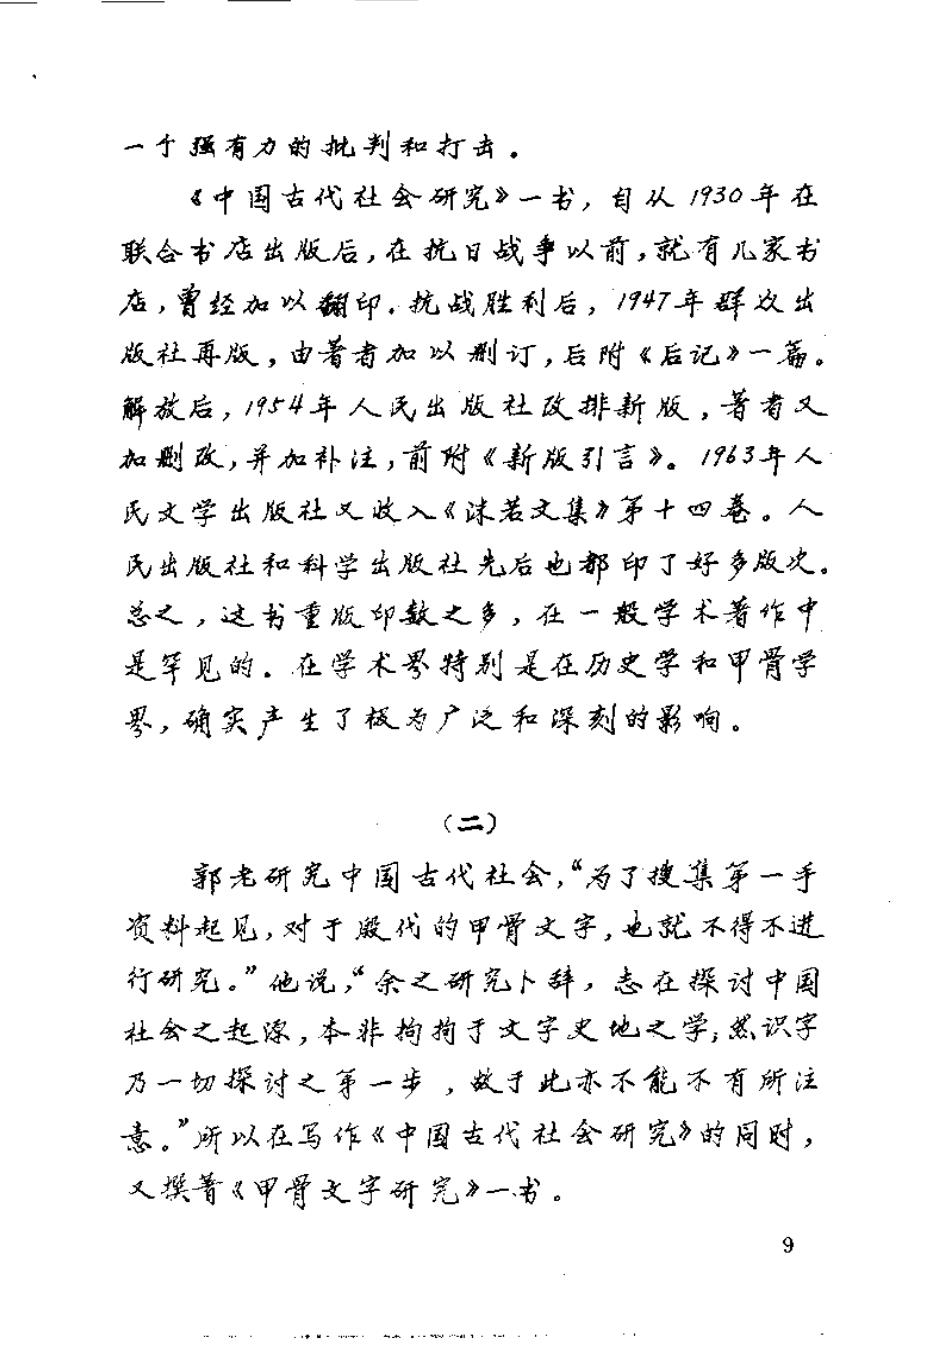 一个强有力的批判和打击。
《中国古代社会研究》一书，自从1930年在
联合书店出版后，在抗日战争以前，就有几家书
店，曾经加以翻印。抗战胜利后，1947年群众出
版社再版，由著者加以删订，后附《后记》一篇。
解放后，1954年人民出版社改排新版，著者又
加删改，并加补注，前附《新版引言》。1963年人
民文学出版社又收入《沫若文集》第十四卷。人
民出版社和科学出版社先后也都印了好多版次。
总之，这书重版印数之多，在一般学术著作中
是罕见的。在学术界特别是在历史学和甲骨学
界，确实产生了极为广泛和深刻的影响。
（二）
郭老研究中国古代社会，“为了搜集第一手
资料起见，对于殷代的甲骨文字，也就不得不进
行研究。”他说，“余之研究卜辞，志在探讨中国
社会之起源，本非拘拘于文字史地之学；然识字
乃一切探讨之第一步，故于此亦不能不有所注
意。”所以在写作《中国古代社会研究》的同时，
又撰著《甲骨文字研究》一书。
9